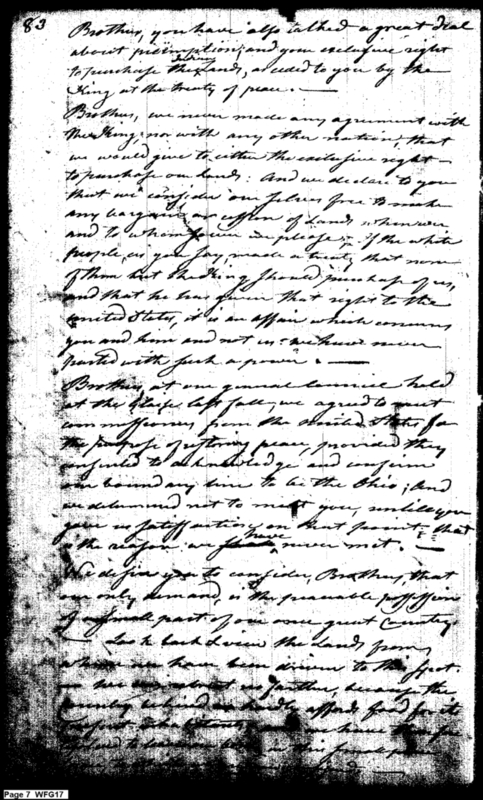 83
Brothers, you have also talked a great deal
about preemption, and your exclusive right
to purchase Indian Lands, as ceded to you by the
King at the treaty of peace. —
Brothers, we never made any agreement with
the King, nor with any other nation, that
we would give to either the exclusive right
to purchase our lands: And we declare to you
that we consider our selves free to make
any bargain or cession of Lands whenever
and to whomsoever we please; — If the white
people, as you say, made a treaty that none
of them but the King should purchase of us,
and that he has given that right to the
United States, it is an affair which concerns
you and him and not us: we have never
parted with such a power. —
Brothers, at our general council held
at the Glaize last fall, we agreed to meet
commissioners from the United States for
the purpose of restoring peace, provided they
consented to acknowledge and confirm
our boundary line to be the Ohio; And
we determined not to meet you, untill you
gave us satisfaction on that point: that
is the reason we have never met. —
We desire you to consider, Brothers, that
our only demand, is the peaceable possession
of a small part of our once great Country.
Look back & view the Lands from
whence we have been driven to this spot.
we can retreat no farther, because the
country behind hardly affords food for its
present inhabitants, and we have therefore
resolved to leave our bones in this small space